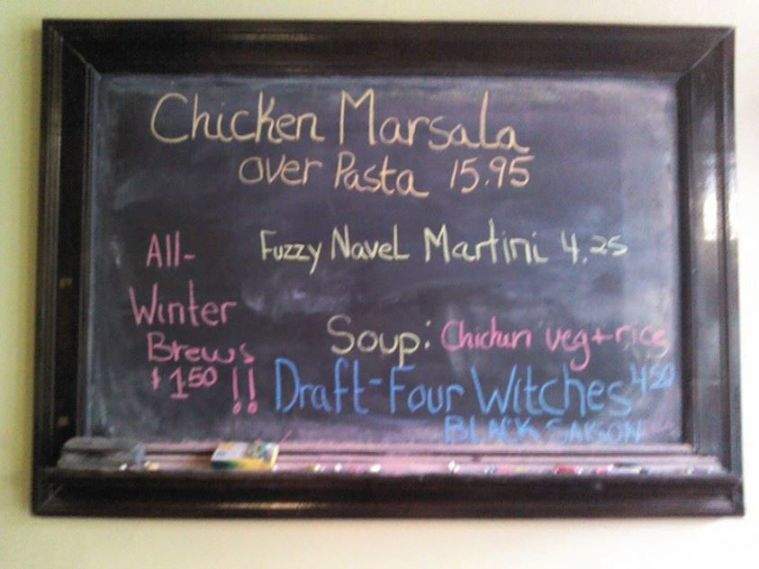 Chicken Marsala
over Pasta 15.95
Fuzzy Navel Martini 4.25
All-
Winter
Brews
$1.50 !!
Soup: Chicken veg + rice
Draft-Four Witches 4.50
BLACK SAISON